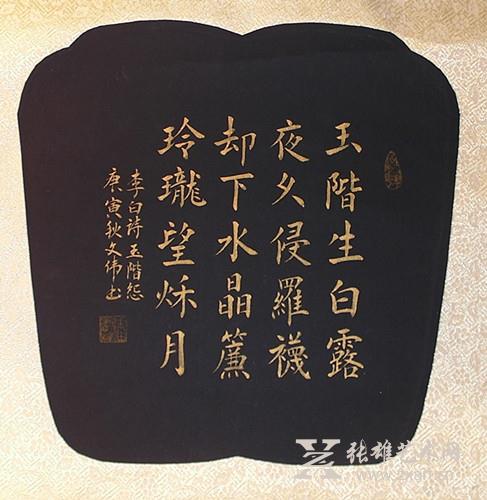 玉階生白露
夜久侵羅襪
却下水晶簾
玲瓏望秋月
李白诗玉階怨
庚寅秋文伟书
张雄艺术网